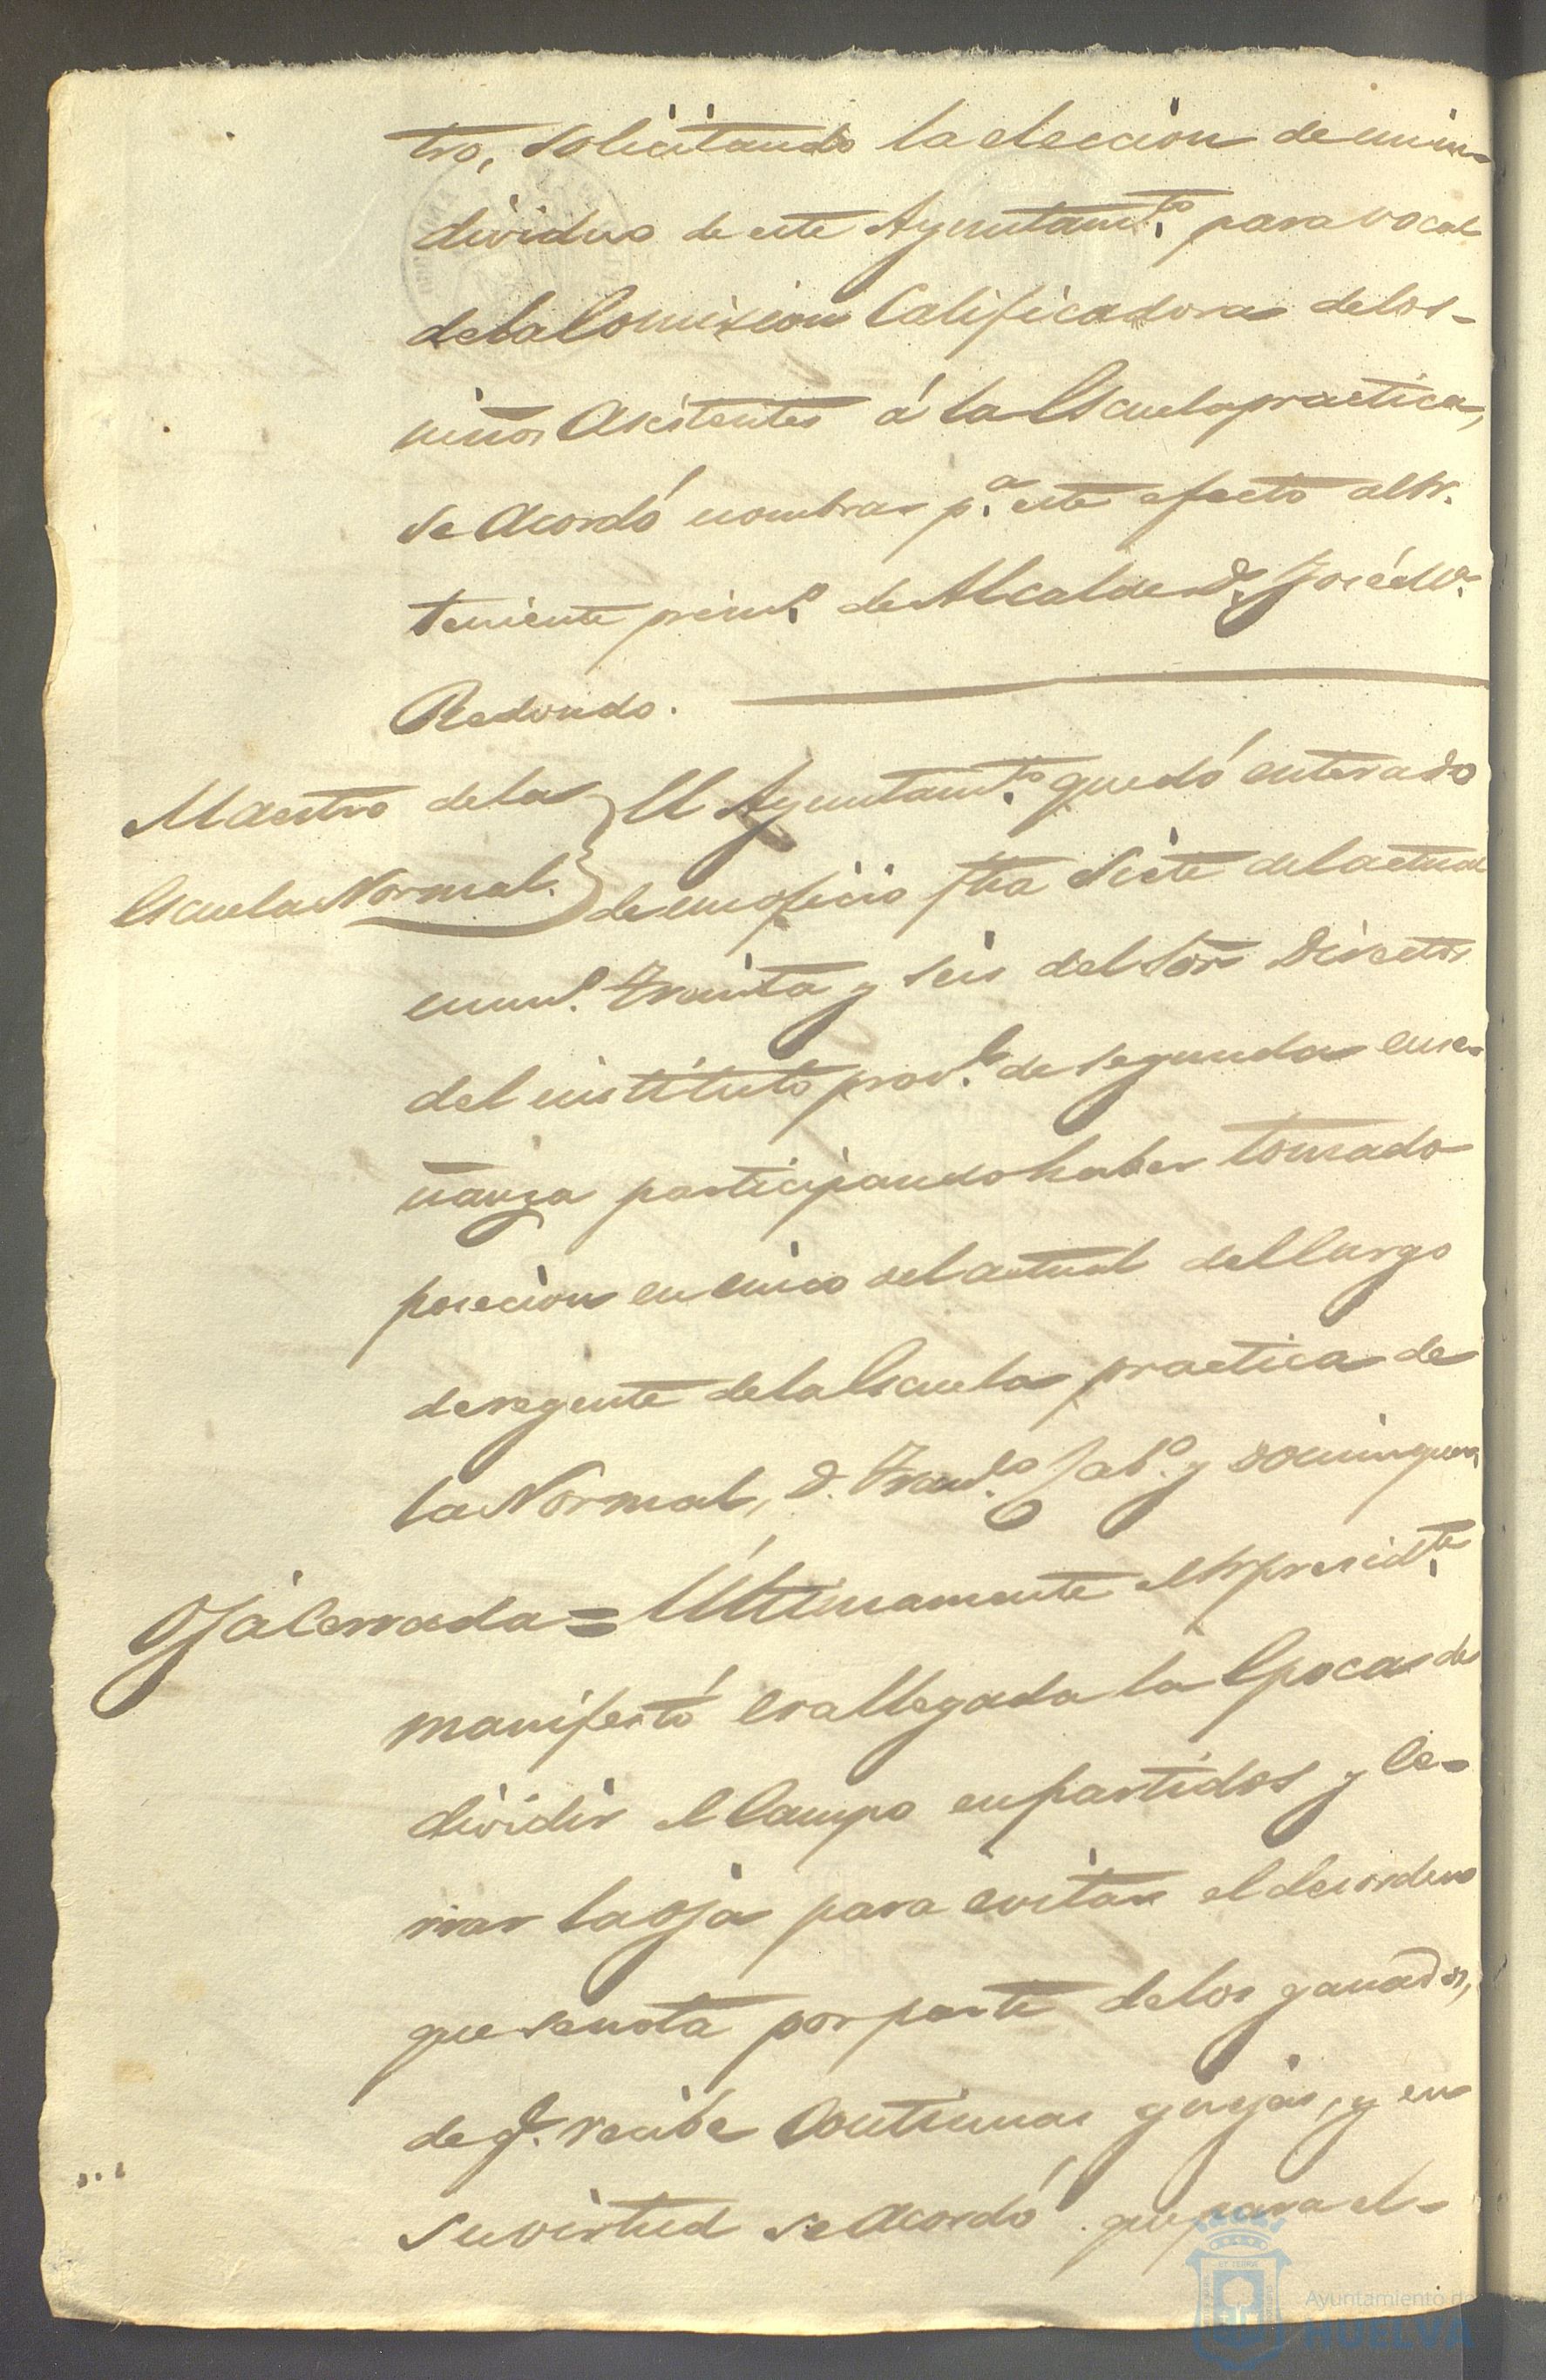 tro, solicitando la eleccion de un in-
dividuo de este Ayuntamto. para vocal
de la Comision Calificadora de los-
niños Asistentes á la Escuela practica,
se Acordó nombrar pa. este efecto al Sr.
teniente primo. de Alcalde Dn. José Ma.
Redondo.
Maestro de la
Escuela Normal.
El Ayuntamto. quedó enterado
de un oficio fha siete del actual
numo. treinta y seis del Sor Director
del instituto provl. de segunda ense-
ñanza participando haber tomado
posecion en cinco del actual del Cargo
de regente de la Escuela practica de
la Normal, D. Franco. y Dominguez.
Oja Cerrada = Ultimamente el Sr presidte.
manifestó era llegada la Epoca de
dividir el Campo en partidos y Ce-
rrar la oja para evitar el desorden
que se nota por parte de los ganados,
de q. recibe Continuas quejas, y en
su virtud se Acordó que para el-
Ayuntamiento de
HUELVA